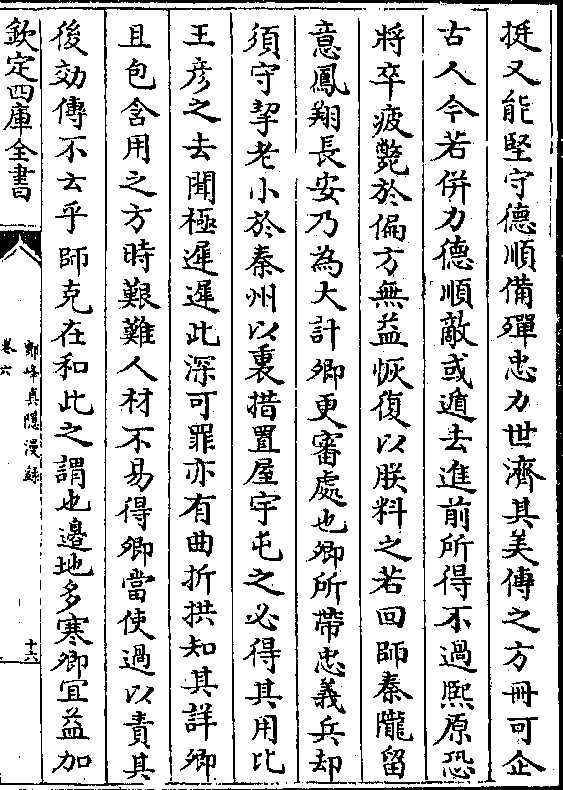 挺又能堅守德順備殫忠力世濟其美傳之方冊可企
古人今若併力德順敵或遁去進前所得不過熙原恐
將卒疲斃於偏方無益恢復以朕料之若回師秦隴留
意鳳翔長安乃為大計卿更審處也卿所帶忠義兵却
須守挈老小於秦州以裏措置屋宇屯之必得其用比
王彥之去聞極遲遲此深可罪亦有曲折拱知其詳卿
且包含用之方時艱難人材不易得卿當使過以責其
後効傳不云乎師克在和此之謂也邉地多寒卿宜益加
欽定四庫全書
鄮峰真隱漫録
卷六
十六